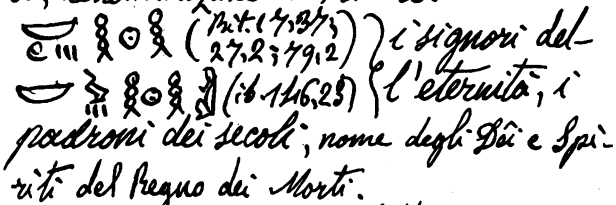 𓎟 𓏥 𓎛𓇳𓎛 (Rit. 17,37; 27,2; 79,2) } i signori del-
𓎟 𓏥 𓎛𓇳𓎛 (ib. 146,23) l'eternità, i
padroni dei secoli, nome degli Dêi e Spi-
riti del Regno dei Morti.